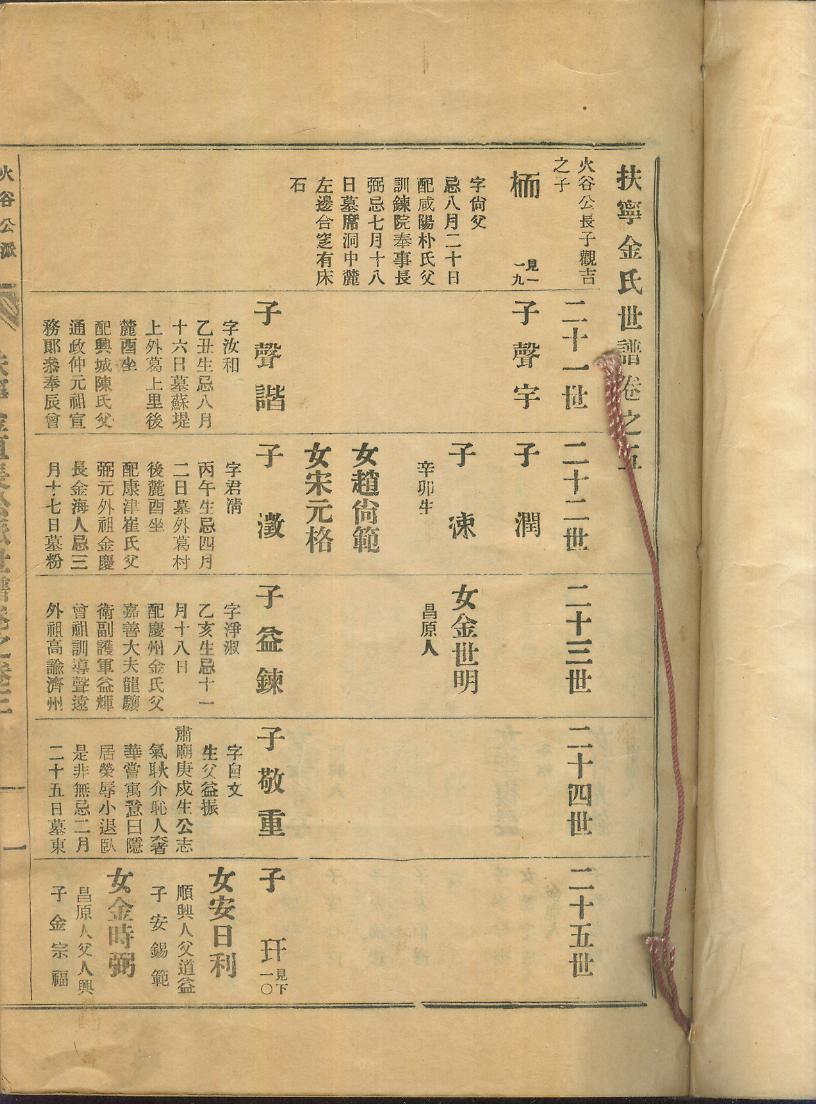 扶寧金氏世譜卷之五
火谷公長子觀吉
之子
栭 見一一九
字尙父
忌八月二十日
配咸陽朴氏父
訓鍊院奉事長
弼忌七月十八
日墓席洞中麓
左邊合窆有床
石
二十一世
子聲宇
子聲諧
字汝和
乙丑生忌八月
十六日墓蘇堤
上外葛上里後
麓酉坐
配興城陳氏父
通政仲元祖宣
務郞叅奉辰曾
二十二世
子潤
子涑
辛卯生
女趙尙範
女宋元格
子澂
字君淸
丙午生忌四月
二日墓外葛村
後麓酉坐
配康津崔氏父
弼元外祖金慶
長金海人忌三
月十七日墓粉
二十三世
女金世明
昌原人
子益鍊
字淨淑
乙亥生忌十一
月十八日
配慶州金氏父
嘉善大夫龍驤
衛副護軍益輝
曾祖訓導聲遠
外祖高諭濟州
二十四世
子敬重
字自文
生父益振
肅廟庚戌生公志
氣耿介恥人奢
華嘗寓意曰隱
居榮辱小退臥
是非無忌二月
二十五日墓東
二十五世
子玕 見下一〇
女安日利
順興人父道益
子安錫範
女金時弼
昌原人父人興
子金宗福
火谷公派
一